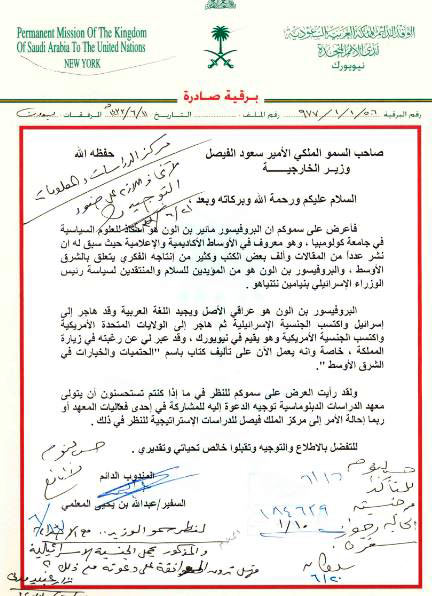 Permanent Mission Of The Kingdom
Of Saudi Arabia To The United Nations
NEW YORK
الوفد الدائم للمملكة العربية السعودية
لدى الأمم المتحدة
نيويورك
برقية صادرة
رقم البرقية ٩٧٧/١/١/٥٦ رقم الملف التاريخ ١٤٣٣/٦/١١ المرفقات بدون
صاحب السمو الملكي الأمير سعود الفيصل حفظه الله
وزير الخارجية
مركز الدراسات والمعلومات
التوجيه
السلام عليكم ورحمة الله وبركاته وبعد
فأعرض على سموكم ان البروفيسور مائير بن الون هو أستاذ للعلوم السياسية
في جامعة كولومبيا ، وهو معروف في الأوساط الأكاديمية والإعلامية حيث سبق له ان
نشر عدداً من المقالات وألف بعض الكتب وكثير من انتاجه الفكري يتعلق بالشرق
الأوسط ، والبروفيسور بن الون هو من المؤيدين للسلام والمنتقدين لسياسة رئيس
الوزراء الإسرائيلي بنيامين نتنياهو .
البروفيسور بن الون هو عراقي الأصل ويجيد اللغة العربية وقد هاجر إلى
إسرائيل واكتسب الجنسية الإسرائيلية ثم هاجر إلى الولايات المتحدة الأمريكية
واكتسب الجنسية الأمريكية وهو يقيم في نيويورك ، وقد عبر لي عن رغبته في زيارة
المملكة ، خاصة وانه يعمل الآن على تأليف كتاب باسم "الحتميات والخيارات في
الشرق الأوسط" .
ولقد رأيت العرض على سموكم للنظر في ما إذا كنتم تستحسنون أن يتولى
معهد الدراسات الدبلوماسية توجيه الدعوة إليه للمشاركة في إحدى فعاليات المعهد أو
ربما إحالة الأمر إلى مركز الملك فيصل للدراسات الإستراتيجية للنظر في ذلك .
للتفضل بالاطلاع والتوجيه وتقبلوا خالص تحياتي وتقديري .
المندوب الدائم
السفير/عبدالله بن يحيى المعلمي
٦/١٦
١٨٤٦٣٩
١/١٠
٦/٢٠
لنظر سمو الوزير
والمذكور يحمل الجنسية الاسرائيلية
فهل ترون الموافقة على دعوته مع ذلك ؟